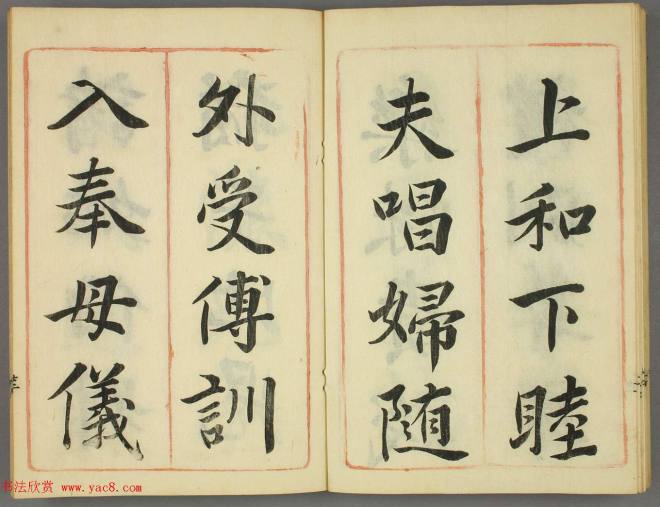 上和下睦
夫唱婦随
外受傅訓
入奉母儀
书法欣赏 www.yac8.com